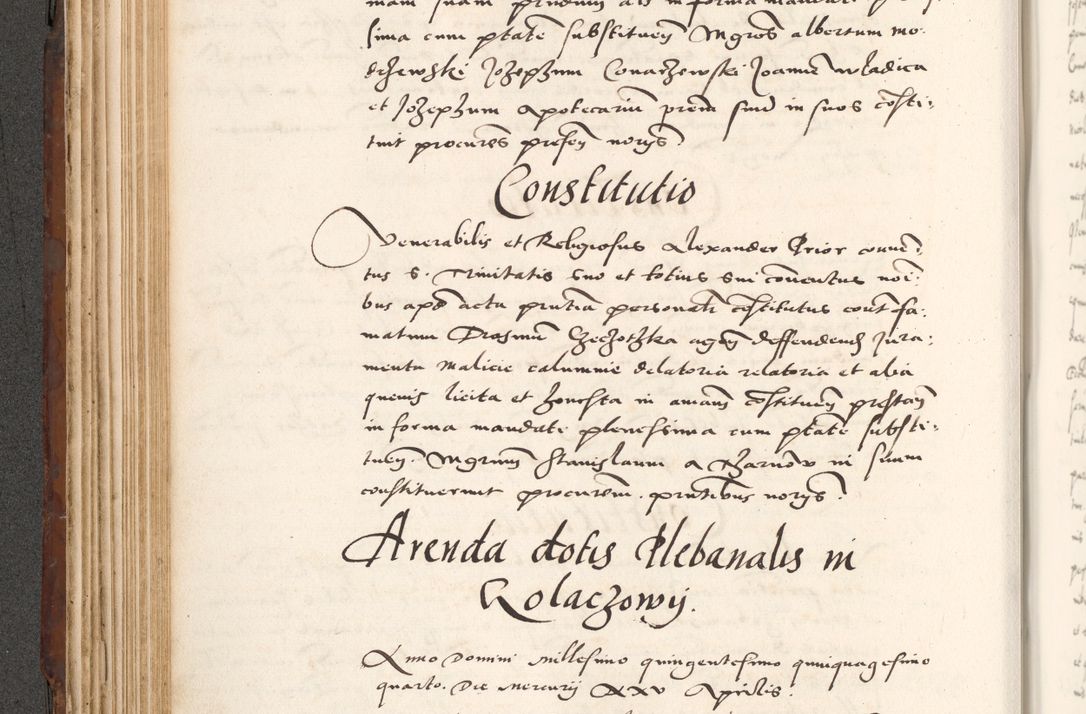 sima cum ptate substituen Mgros albertum mo-
drzewski Jozephum Conarzewski Joanne wladica
et Jozephum Apotecarium prem suu in suos costi-
tuit procures presen norys
Constitutio
Venerabilis et Religiosus Alexander Prior conue-
tus S. Trinitatis suo et totius sui conuentus noi-
bus apd acta pntia personali costitutus cont fa-
matum Erasmu Czeczothka agen deffenden Jura-
menta malicie calumnie delatoria relatoria et alia
queuis licita et honesta in amam costituen prestan
in forma mandati plenessima cum ptate substi-
tuen. Mgrum Stanislaum a Tharnow in suum
constituerunt procurem. pntibus norys.
Arenda dotis Plebanalis in
Kolaczowy.
Anno Domini Millesimo quingentesimo quinquagesimo
quarto. Die Mercurii XXV Aprilis.